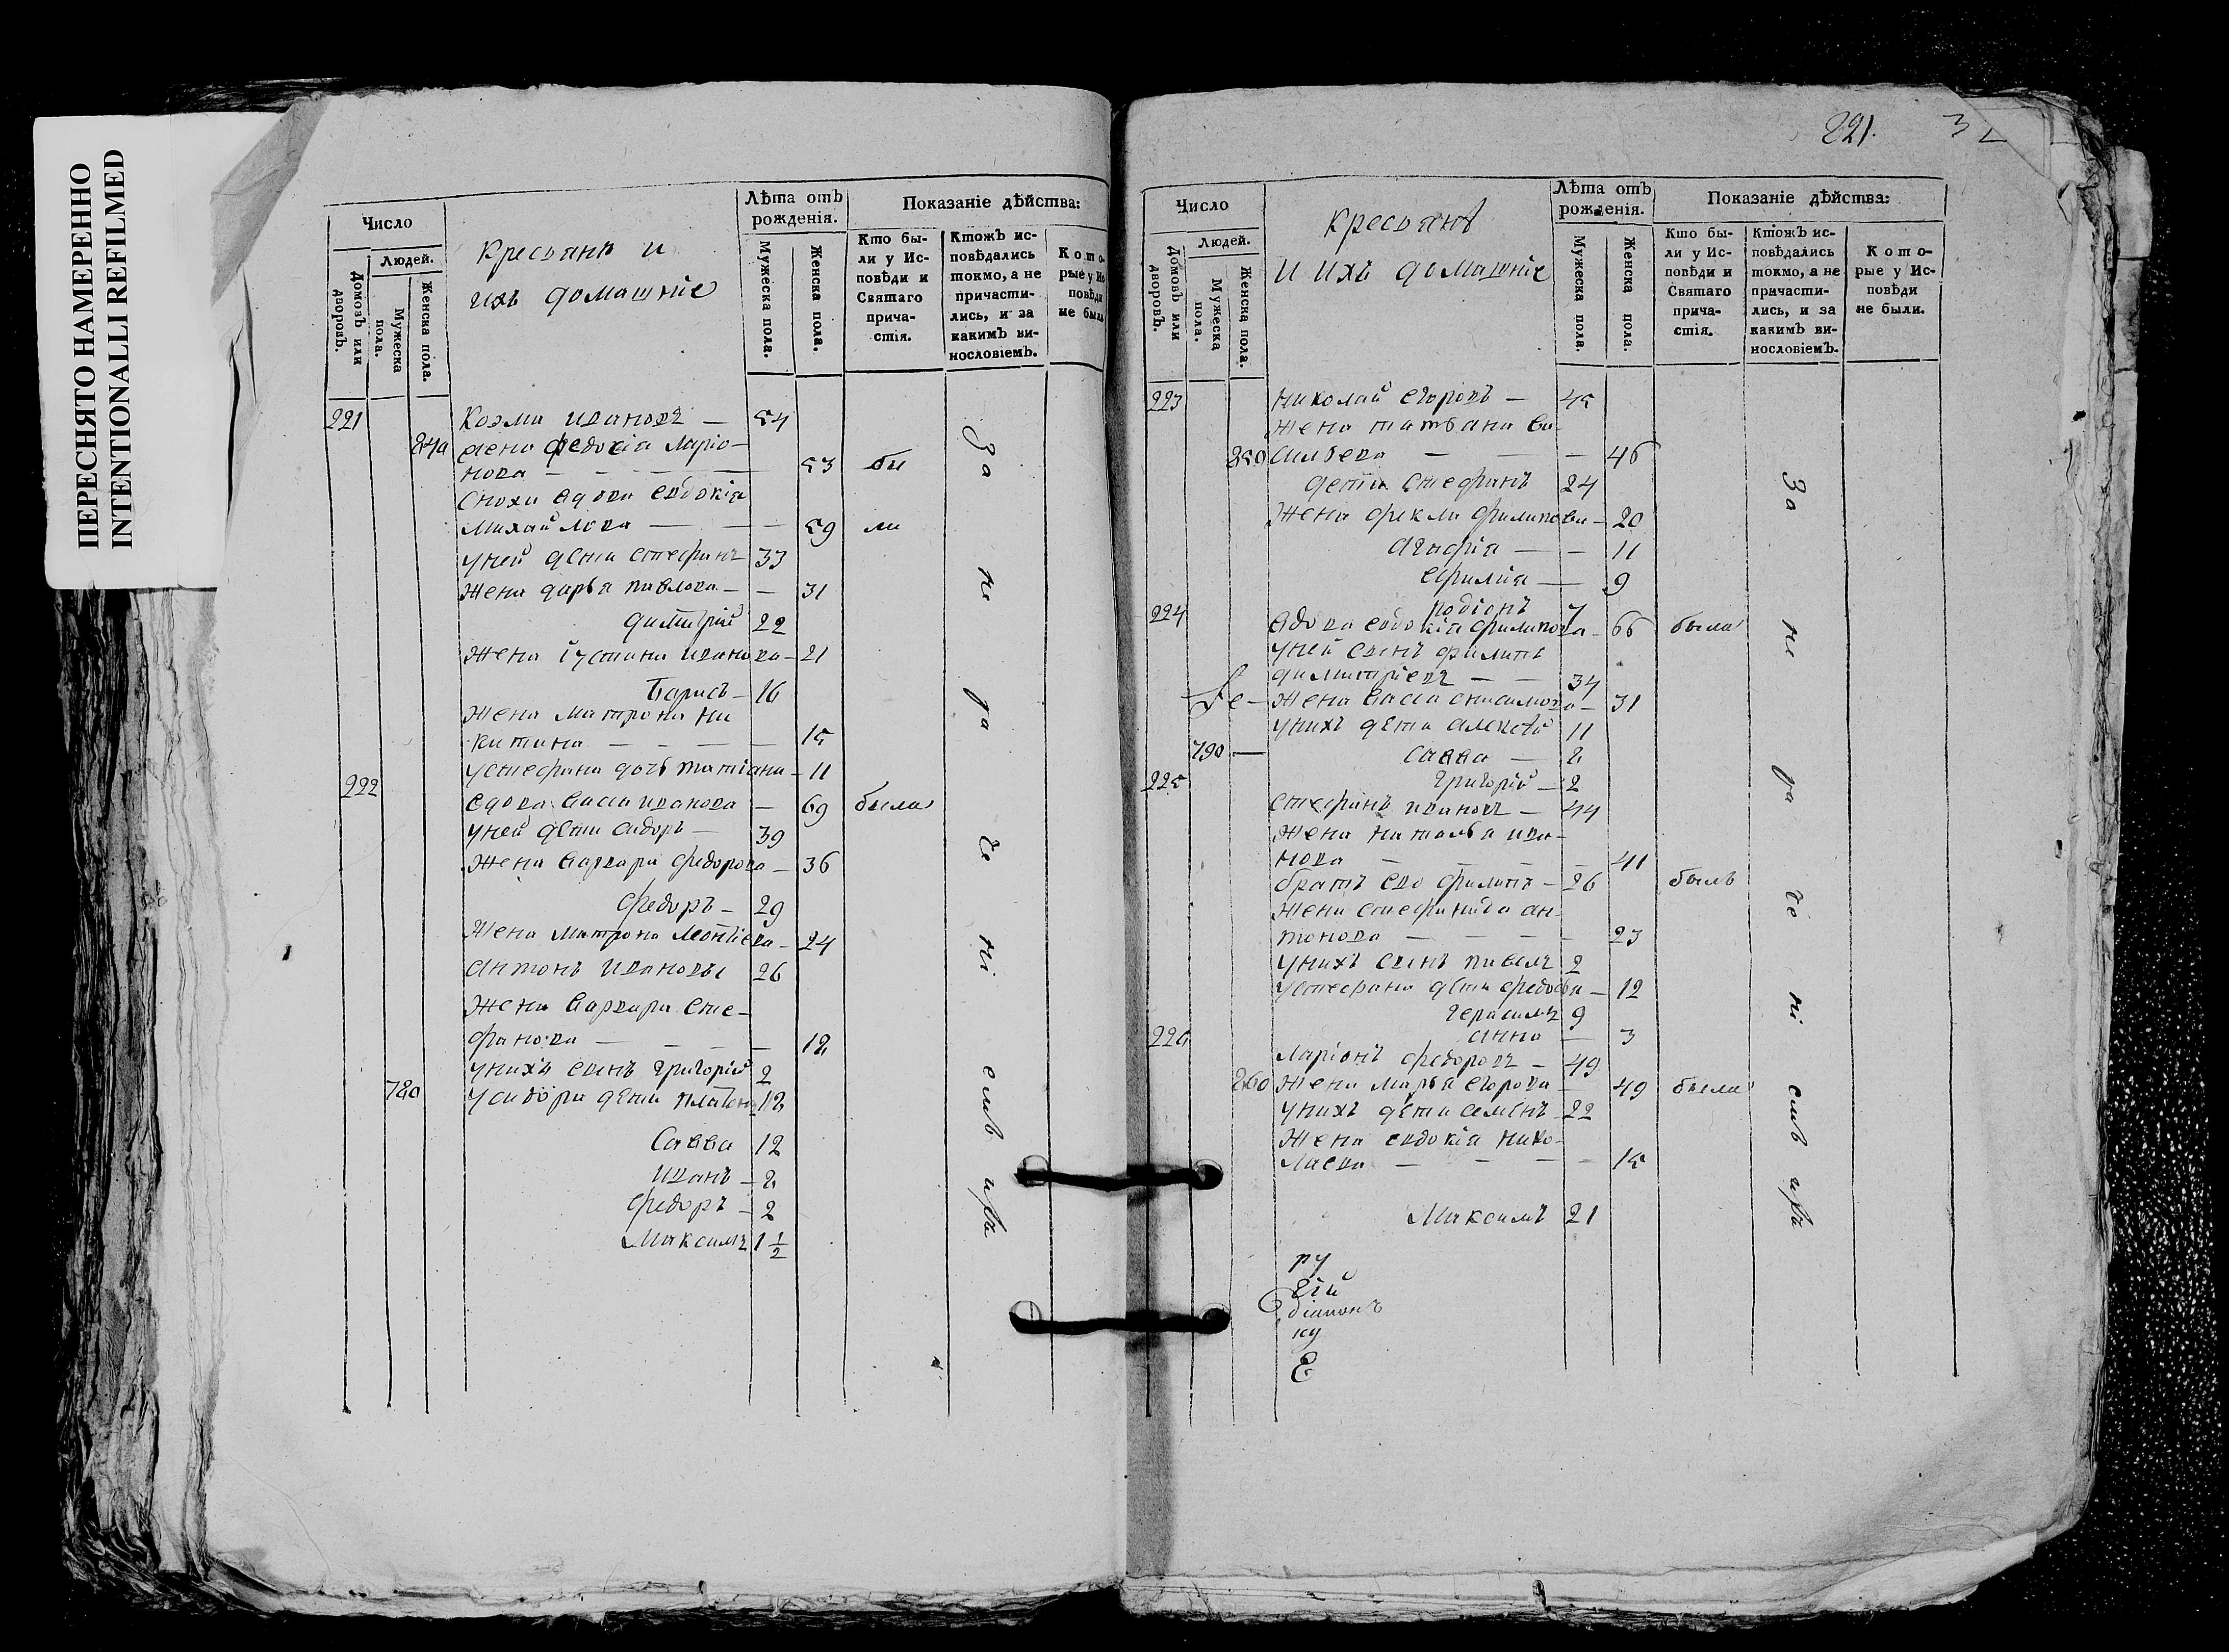 ПЕРЕСНЯТО НАМЕРЕННО
INTENTIONALLI REFILMED
Число
Людей.
Домовъ или дворовъ.
Мужеска пола.
Женска пола.
кресьянъ и
ихъ домашніе
Лѣта отъ рожденія.
Мужеска пола.
Женска пола.
Показаніе дѣйства:
Кто были у Исповѣди и Святаго причастія.
Ктожъ исповѣдались токмо, а не причастились, и за какимъ винословіемъ.
Которые у Исповѣди не были
221 Козма ивановъ — 54
жена федосіа ларіо-
нова — 53 бы
сноха вдова евдокіа
михайлова — 59 ли
у ней дети стефанъ 33
жена дарья павлова — 31
димитрій 22
жена іустина иванова — 21
Барисъ — 16
жена матрона ни
китина — 15
у стефана дочь татіана — 11
222
вдова васса иванова — 69 была
у ней дети сидоръ — 39
жена варвара федорова — 36
федоръ — 29
жена матрона леонтіева — 24
антонъ ивановъ 26
жена варвара сте-
фанова — 18
у нихъ сынъ григорій 2
780 у сидора дети платонъ 12
савва 12
иванъ — 2
федоръ — 2
Максимъ 1 1/2
За не ра че ні емъ
221.
Число
Людей.
Домовъ или дворовъ.
Мужеска пола.
Женска пола.
кресьянъ
и ихъ домашніе
Лѣта отъ рожденія.
Мужеска пола.
Женска пола.
Показаніе дѣйства:
Кто были у Исповѣди и Святаго причастія.
Ктожъ исповѣдались токмо, а не причастились, и за какимъ винословіемъ.
Которые у Исповѣди не были.
223 николай егоровъ — 45
жена татьана ва-
850 сильева — 46
дети стефанъ 24
жена фекла филипова — 20
агафіа — 11
9
родіонъ 7
224
вдова евдокіа филипова — 66 была
у ней сынъ филипъ
димитріевъ — 34
жена васса анисимова — 31
у нихъ дети алексѣй 11
790 — савва — 2
225 григорій — 2
стефанъ ивановъ — 44
жена наталья ива-
нова — 41
братъ его филипъ — 26 былъ
жена стефанида ан-
тонова — 23
у нихъ сынъ павелъ 2
у стефана дети федосіа — 12
герасимъ 9
226 анна — 3
ларіонъ федоровъ — 49
860 жена марья егорова — 49 была
у нихъ дѣти семенъ 22
жена евдокіа нико-
лаева — 15
Максимъ 21
ру
гій
діаконъ
ку
За не ра че ні емъ